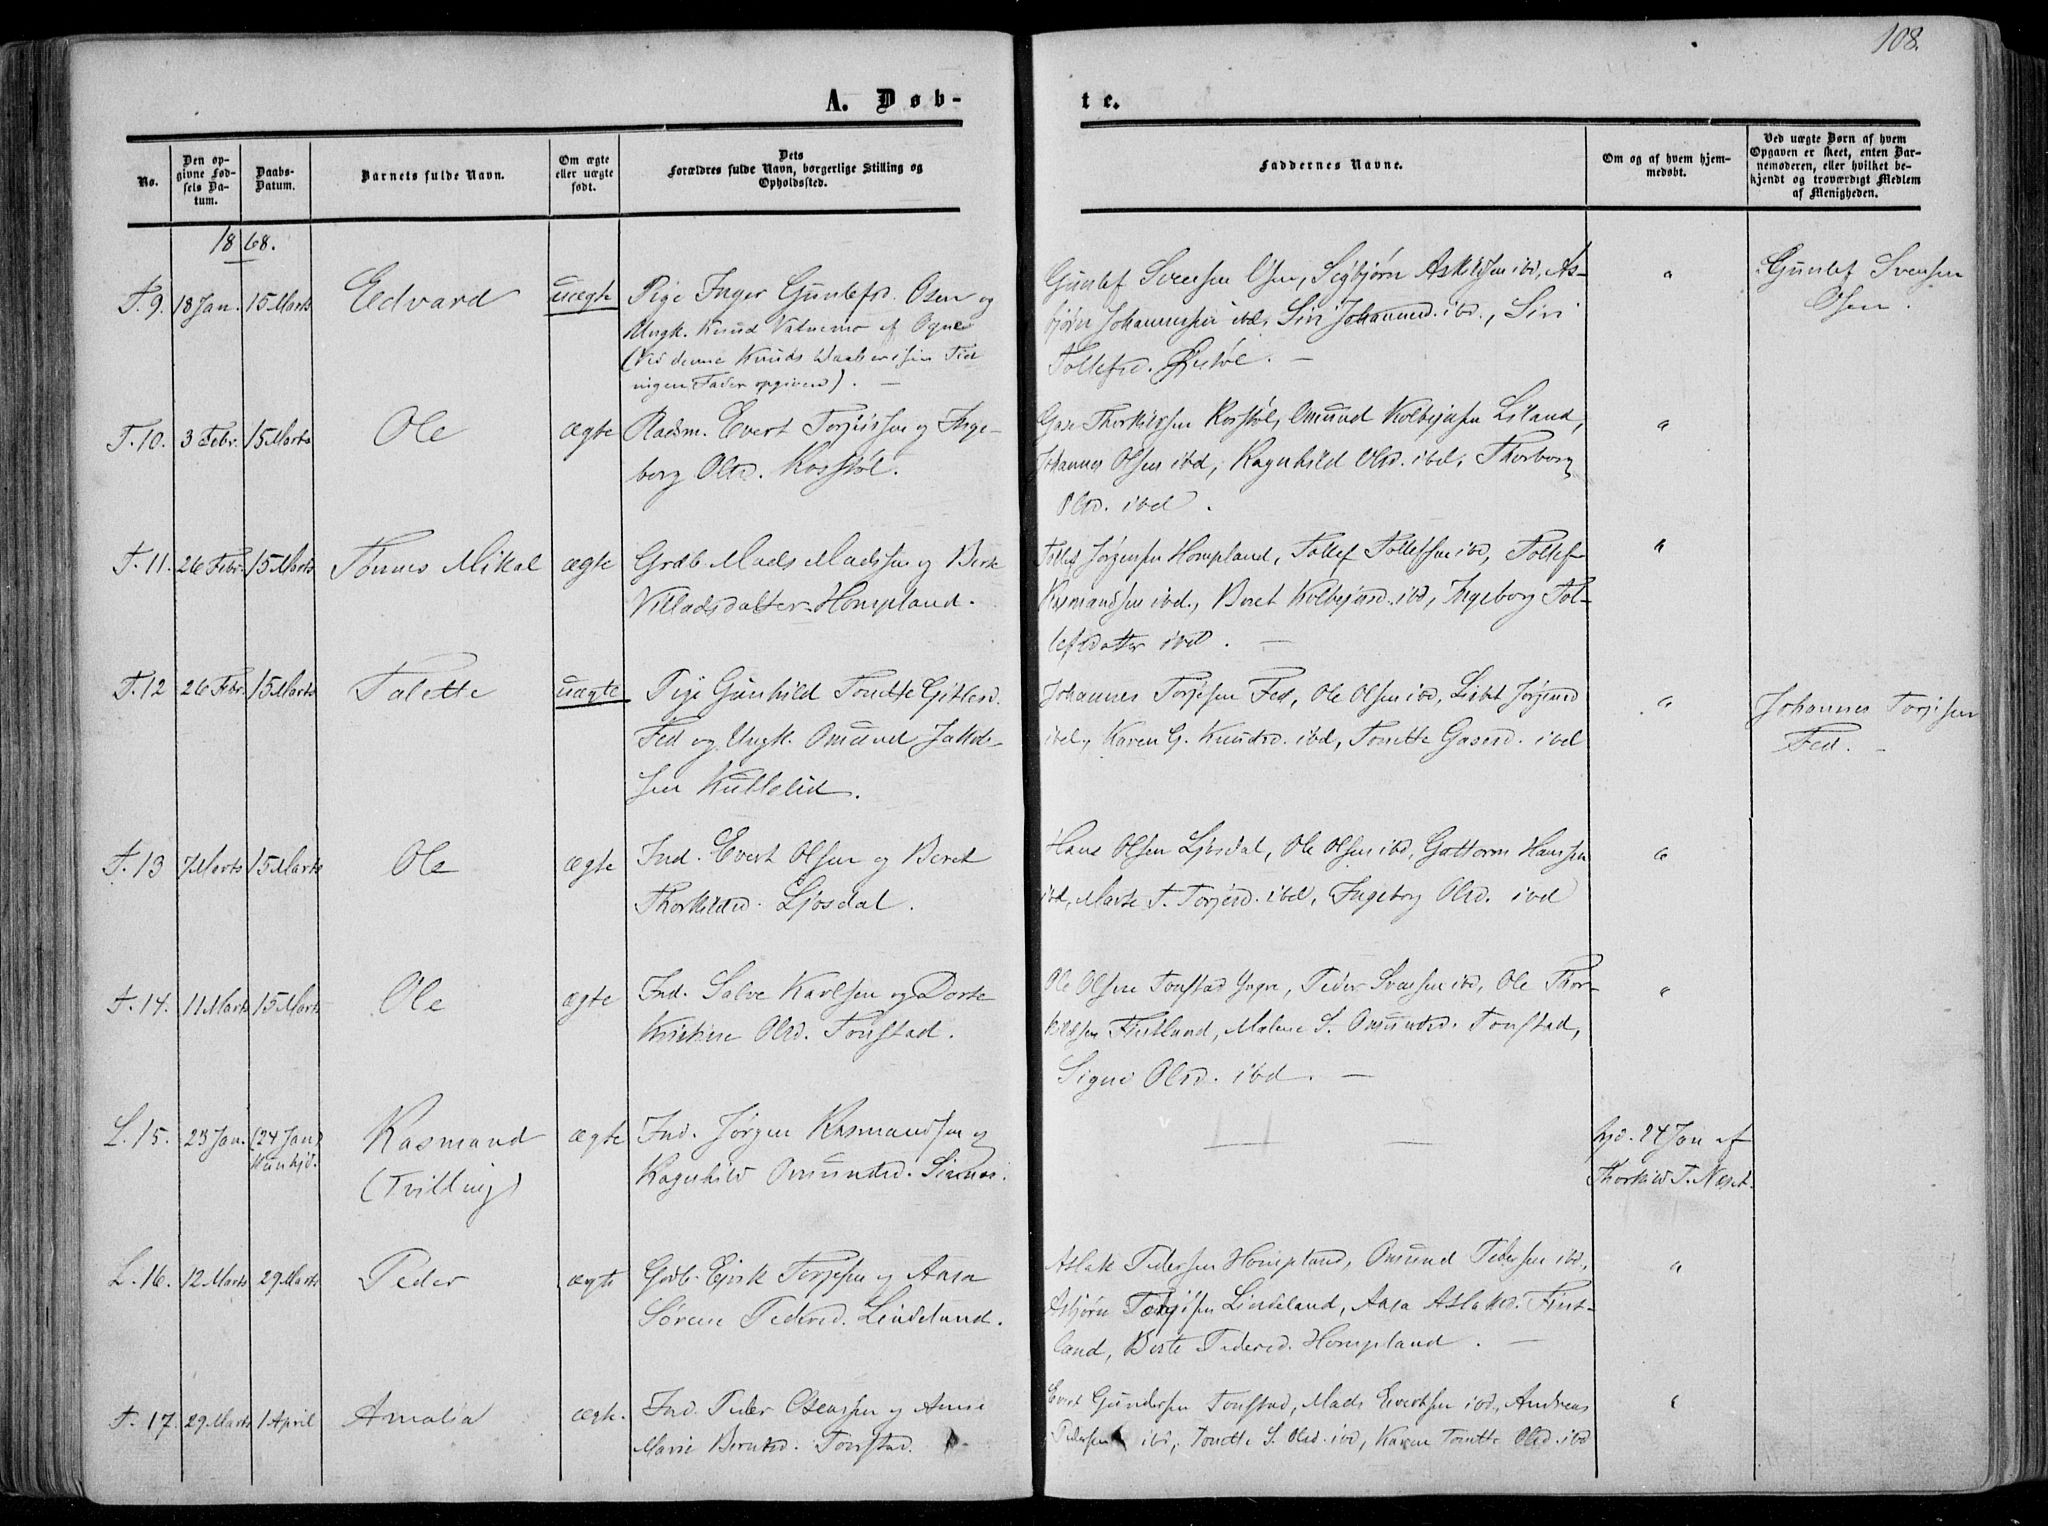 108.
A. Døb-
te.
No.
Den op-
givne Fød-
sels Da-
tum.
Daabs-
Datum.
Barnets fulde Navn.
Om ægte
eller uægte
født.
Dets
Forældres fulde Navn, borgerlige Stilling og
Opholdssted.
Faddernes Navne.
Om og af hvem hjem-
medøbt.
Ved uægte Børn af hvem
Opgaven er skeet, enten Bar-
nemoderen, eller hvilket be-
kjendt og troværdigt Medlem
af Menigheden.
1868.
T. 9. 18 Jan. 15 Marts Edvard uægte Pige Inger Gunlefsd. Osen og
Ungk. Knud Valnemo af Ogne
(Ved denne Knuds Daab er
ingen Fader opgiven). —
Gunlef Svensen Osen, Segbjørn Askildsen ibd, As-
bjørn Johannesen ibd, Siri Johannesd. ibd., Siri
Tollefsd. Øksstøl. —
"
Gunlef Svensen
Osen.
T. 10. 3 Febr. 15 Marts Ole ægte Pladsm. Evert Torjussen og Inge-
borg Olsd. Rosstøl.
Gase Thorkildsen Rosstøl, Omund Kolbejnsen Liland,
Johannes Olsen ibd, Ragnhild Olsd. ibd, Thorborg
Olsd. ibd.
"
T. 11. 26 Febr. 15 Marts Tønnes Mikal ægte Grdb. Mads Madssen og Berte
Villadsdatter Hompland.
Tollef Jørgensen Hompland, Tollef Tollefsen ibd, Tollef
Rasmandsen ibd, Beret Kolbejnsd. ibd, Ingeborg Tol-
lefsdatter ibd. —
"
T. 12 26 Febr. 15 Marts Talette uægte Pige Gunhild Tonette Gitlesd.
Fed og Ungk. Omund Jakob-
sen Kvitlelid.
Johannes Torjesen Fed, Ole Olsen ibd, Lisbet Jørgensd
ibd, Karen G. Knudsd. ibd, Tonette Gasesd. ibd
"
Johannes Torjesen
Fed. —
T. 13 7 Marts 15 Marts Ole ægte Ind. Evert Olsen og Beret
Thorkildsd. Ljosdal.
Hans Olsen Ljosdal, Ole Olsen ibd, Guttorm Hanssen
ibd, Marte T. Torjesd. ibd, Ingeborg Olsd. ibd
"
T. 14. 11 Marts 15 Marts Ole ægte Ind. Salve Karlsen og Dorte
Kristine Olsd. Tonstad.
Ole Olsen Tonstad Yngre, Peder Svensen ibd, Ole Thor-
kildsen Fintland, Malene S. Omundsd. Tonstad,
Signe Olsd. ibd. —
"
L. 15. 23 Jan. (24 Jan) Rasmand ægte Ind. Jørgen Rasmandsen og
kun hjd.
(Tvilling)
Ragnhild Omundsd. Sirnes.
hjd. 24 Jan af
Thorkild T. Neset.
L. 16. 12 Marts 29 Marts Peder ægte Grdb. Ejrik Torjesen og Aasa
Sørene Pedersd. Lindeland.
Aslak Pedersen Hompland, Omund Pedersen ibd,
Asbjørn Torjesen Lindeland, Aasa Aslaksd. Fint-
land, Berte Pedersd. Hompland. —
"
T. 17. 29 Marts 1 April Amalia ægte. Ind. Peder Oseassen og Anne
Marie Berntsd. Tonstad.
Evert Gundersen Tonstad, Mads Evertsen ibd, Andreas
Pedersen ibd, Tonette S. Olsd. ibd, Karen Tonette Olsd. ibd
"